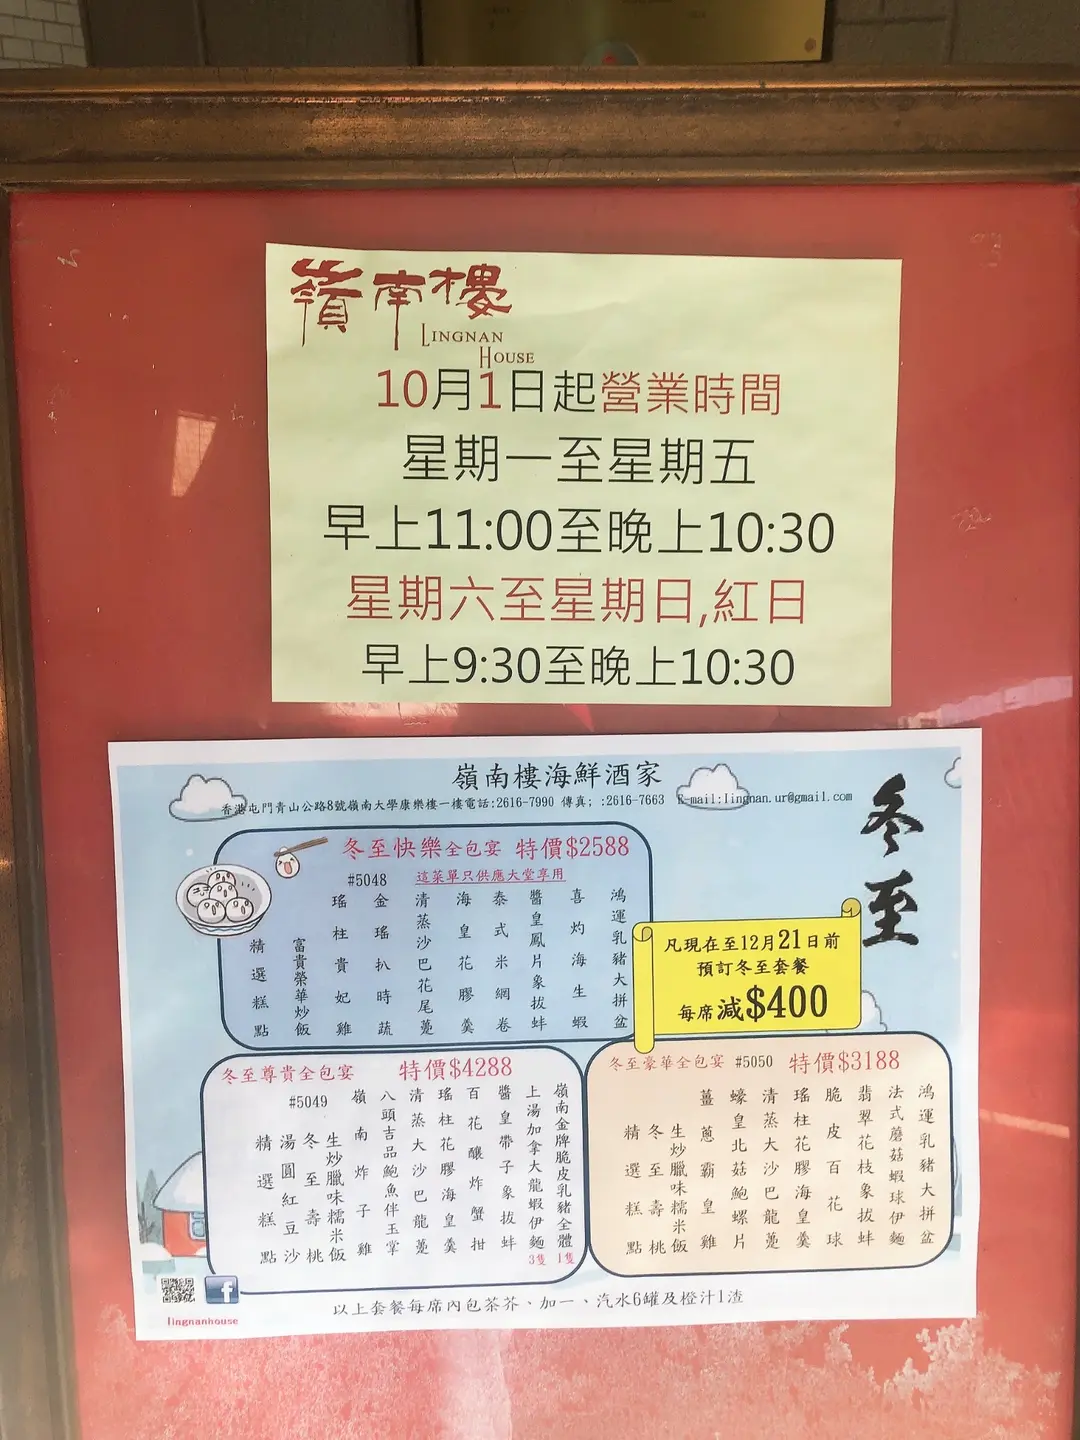 嶺南樓
LINGNAN
HOUSE
10月1日起營業時間
星期一至星期五
早上11:00至晚上10:30
星期六至星期日,紅日
早上9:30至晚上10:30
嶺南樓海鮮酒家
香港屯門青山公路8號嶺南大學康樂樓一樓電話:2616-7990 傳真; :2616-7663 E-mail:lingnan.ur@gmail.com
冬至
冬至快樂全包宴 特價$2588
#5048 這菜單只供應大堂享用
鴻運乳豬大拼盆
喜灼海生蝦
醬皇鳳片象拔蚌
泰式米網卷
海皇花膠羹
清蒸沙巴花尾躉
金瑤扒時蔬
瑤柱貴妃雞
富貴榮華炒飯
精選糕點
凡現在至12月21日前
預訂冬至套餐
每席減$400
冬至尊貴全包宴 特價$4288
#5049
嶺南金牌脆皮乳豬全體 1隻
上湯加拿大龍蝦伊麵 3隻
醬皇帶子象拔蚌
百花釀炸蟹拑
瑤柱花膠海皇羹
清蒸大沙巴龍躉
八頭吉品鮑魚伴玉掌
嶺南炸子雞
生炒臘味糯米飯
冬至壽桃
湯圓紅豆沙
精選糕點
冬至豪華全包宴 #5050 特價$3188
鴻運乳豬大拼盆
法式蘑菇蝦球伊麵
翡翠花枝象拔蚌
脆皮百花球
瑤柱花膠海皇羹
清蒸大沙巴龍躉
蠔皇北菇鮑螺片
薑蔥霸皇雞
生炒臘味糯米飯
冬至壽桃
精選糕點
lingnanhouse
以上套餐每席內包茶芥、加一、汽水6罐及橙汁1渣